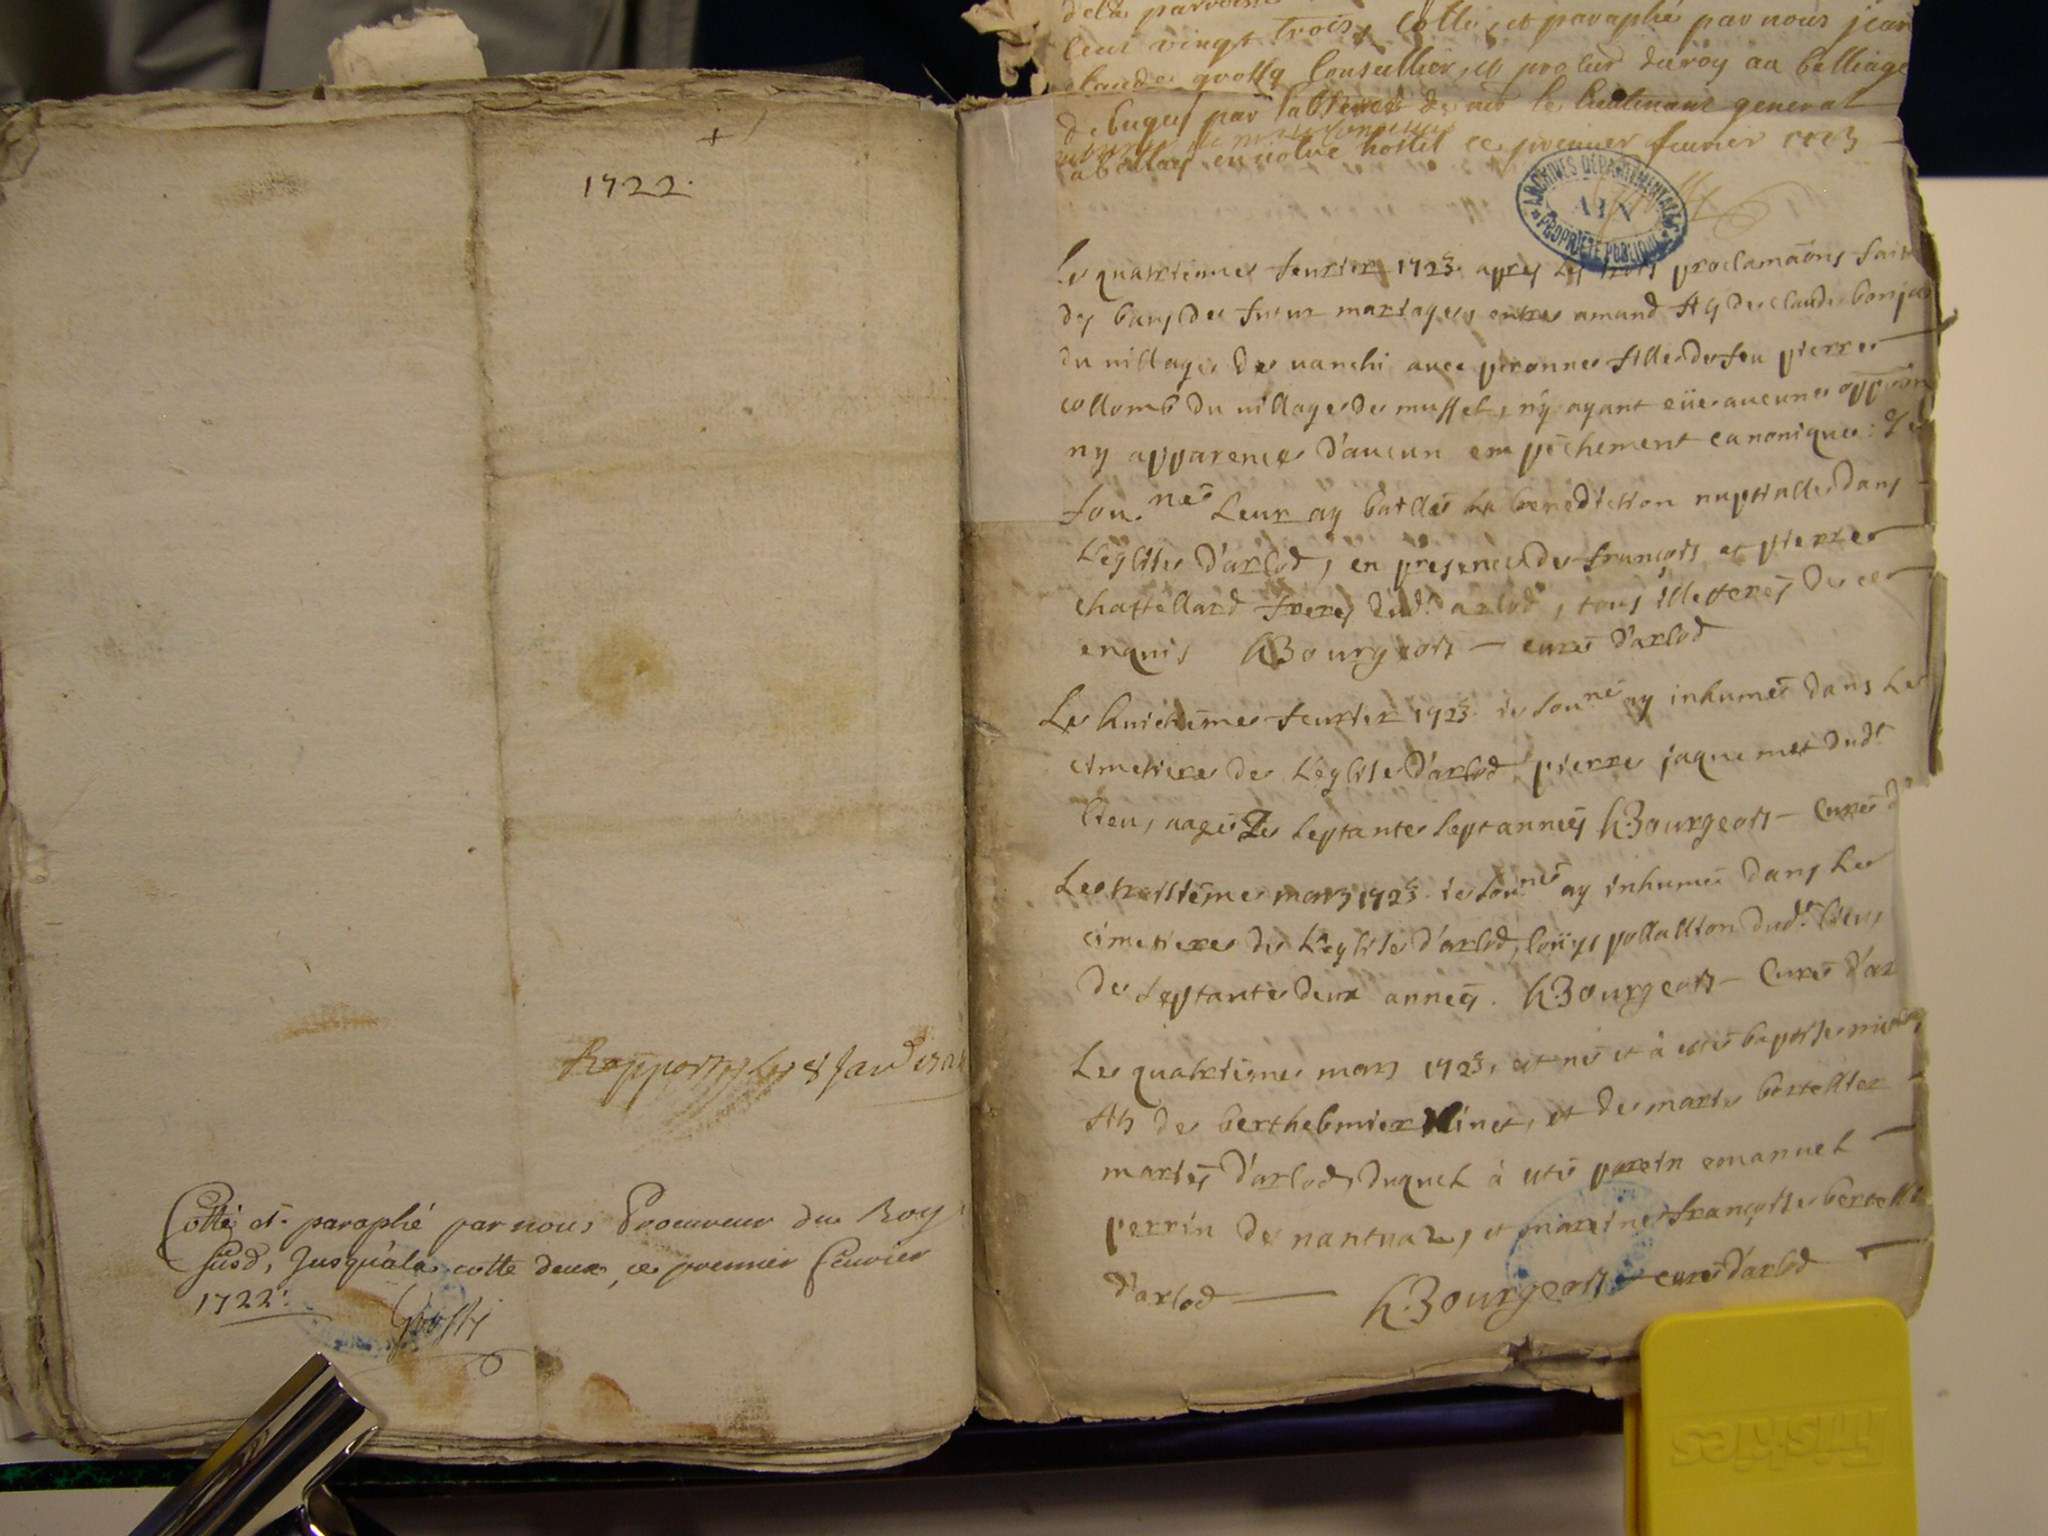 1722.
Rapporté le 8 Janv
Cotté et paraphé par nous Procureur du Roy
susd, Jusqu'a la cotte deux, ce premier feuvrier
1722.
Grossy
de la paroisse
cent vingt trois, Cotté, et paraphé par nous jean
claude grossy Conseillier, et procur du roy au balliage
de bugey par l'absence de mr le lieutenant general
a belley en notre hostel ce premier feurier
ARCHIVES DÉPARTEMENTALES
AIN
PROPRIÉTÉ PUBLIQUE
Le quatrieme feurier 1723. apres les trois proclamaõns faite
des bans de futur mariage, entre amand fils de claude bonja
du uillage de uanchi auec peronne fille de feu pierre
collomb du uillage de mussel, n'y ayant eüe aucune opp
ny apparence d'aucun empéchement canonique: Je
sou.né Leur ay baillé La benediction nuptialle dans
L'église d'arlod, en presence de françois et pierre
chastellard freres dud. arlod, tous illetteres de ce
enquis h.Bourgeois — curé d'arlod
Le huictieme feurier 1723. ie sou.né ay inhumé dans Le
cimetiere de L'eglise d'arlod pierre jaquemet dud.t
lieu, aagé de septante sept années h.Bourgeois — Curé d'
Le troisiéme mars 1723. ie sou.né ay inhumé dans Le
cimetiere de L'eglise d'arlod, loüys pollallion dud.t lieu,
de septante deux années. h.Bourgeois — Curé d'ar
Le quatrieme mars 1723, est né et à esté baptisé nicolas
fils de berthelmier Vinet, et de marie bertellier
mariés d'arlod, duquel à esté parein emanuel
perrin de nantua, et mareine françoise bertelli
d'arlod — h.Bourgeois — curé d'arlod
Friskies